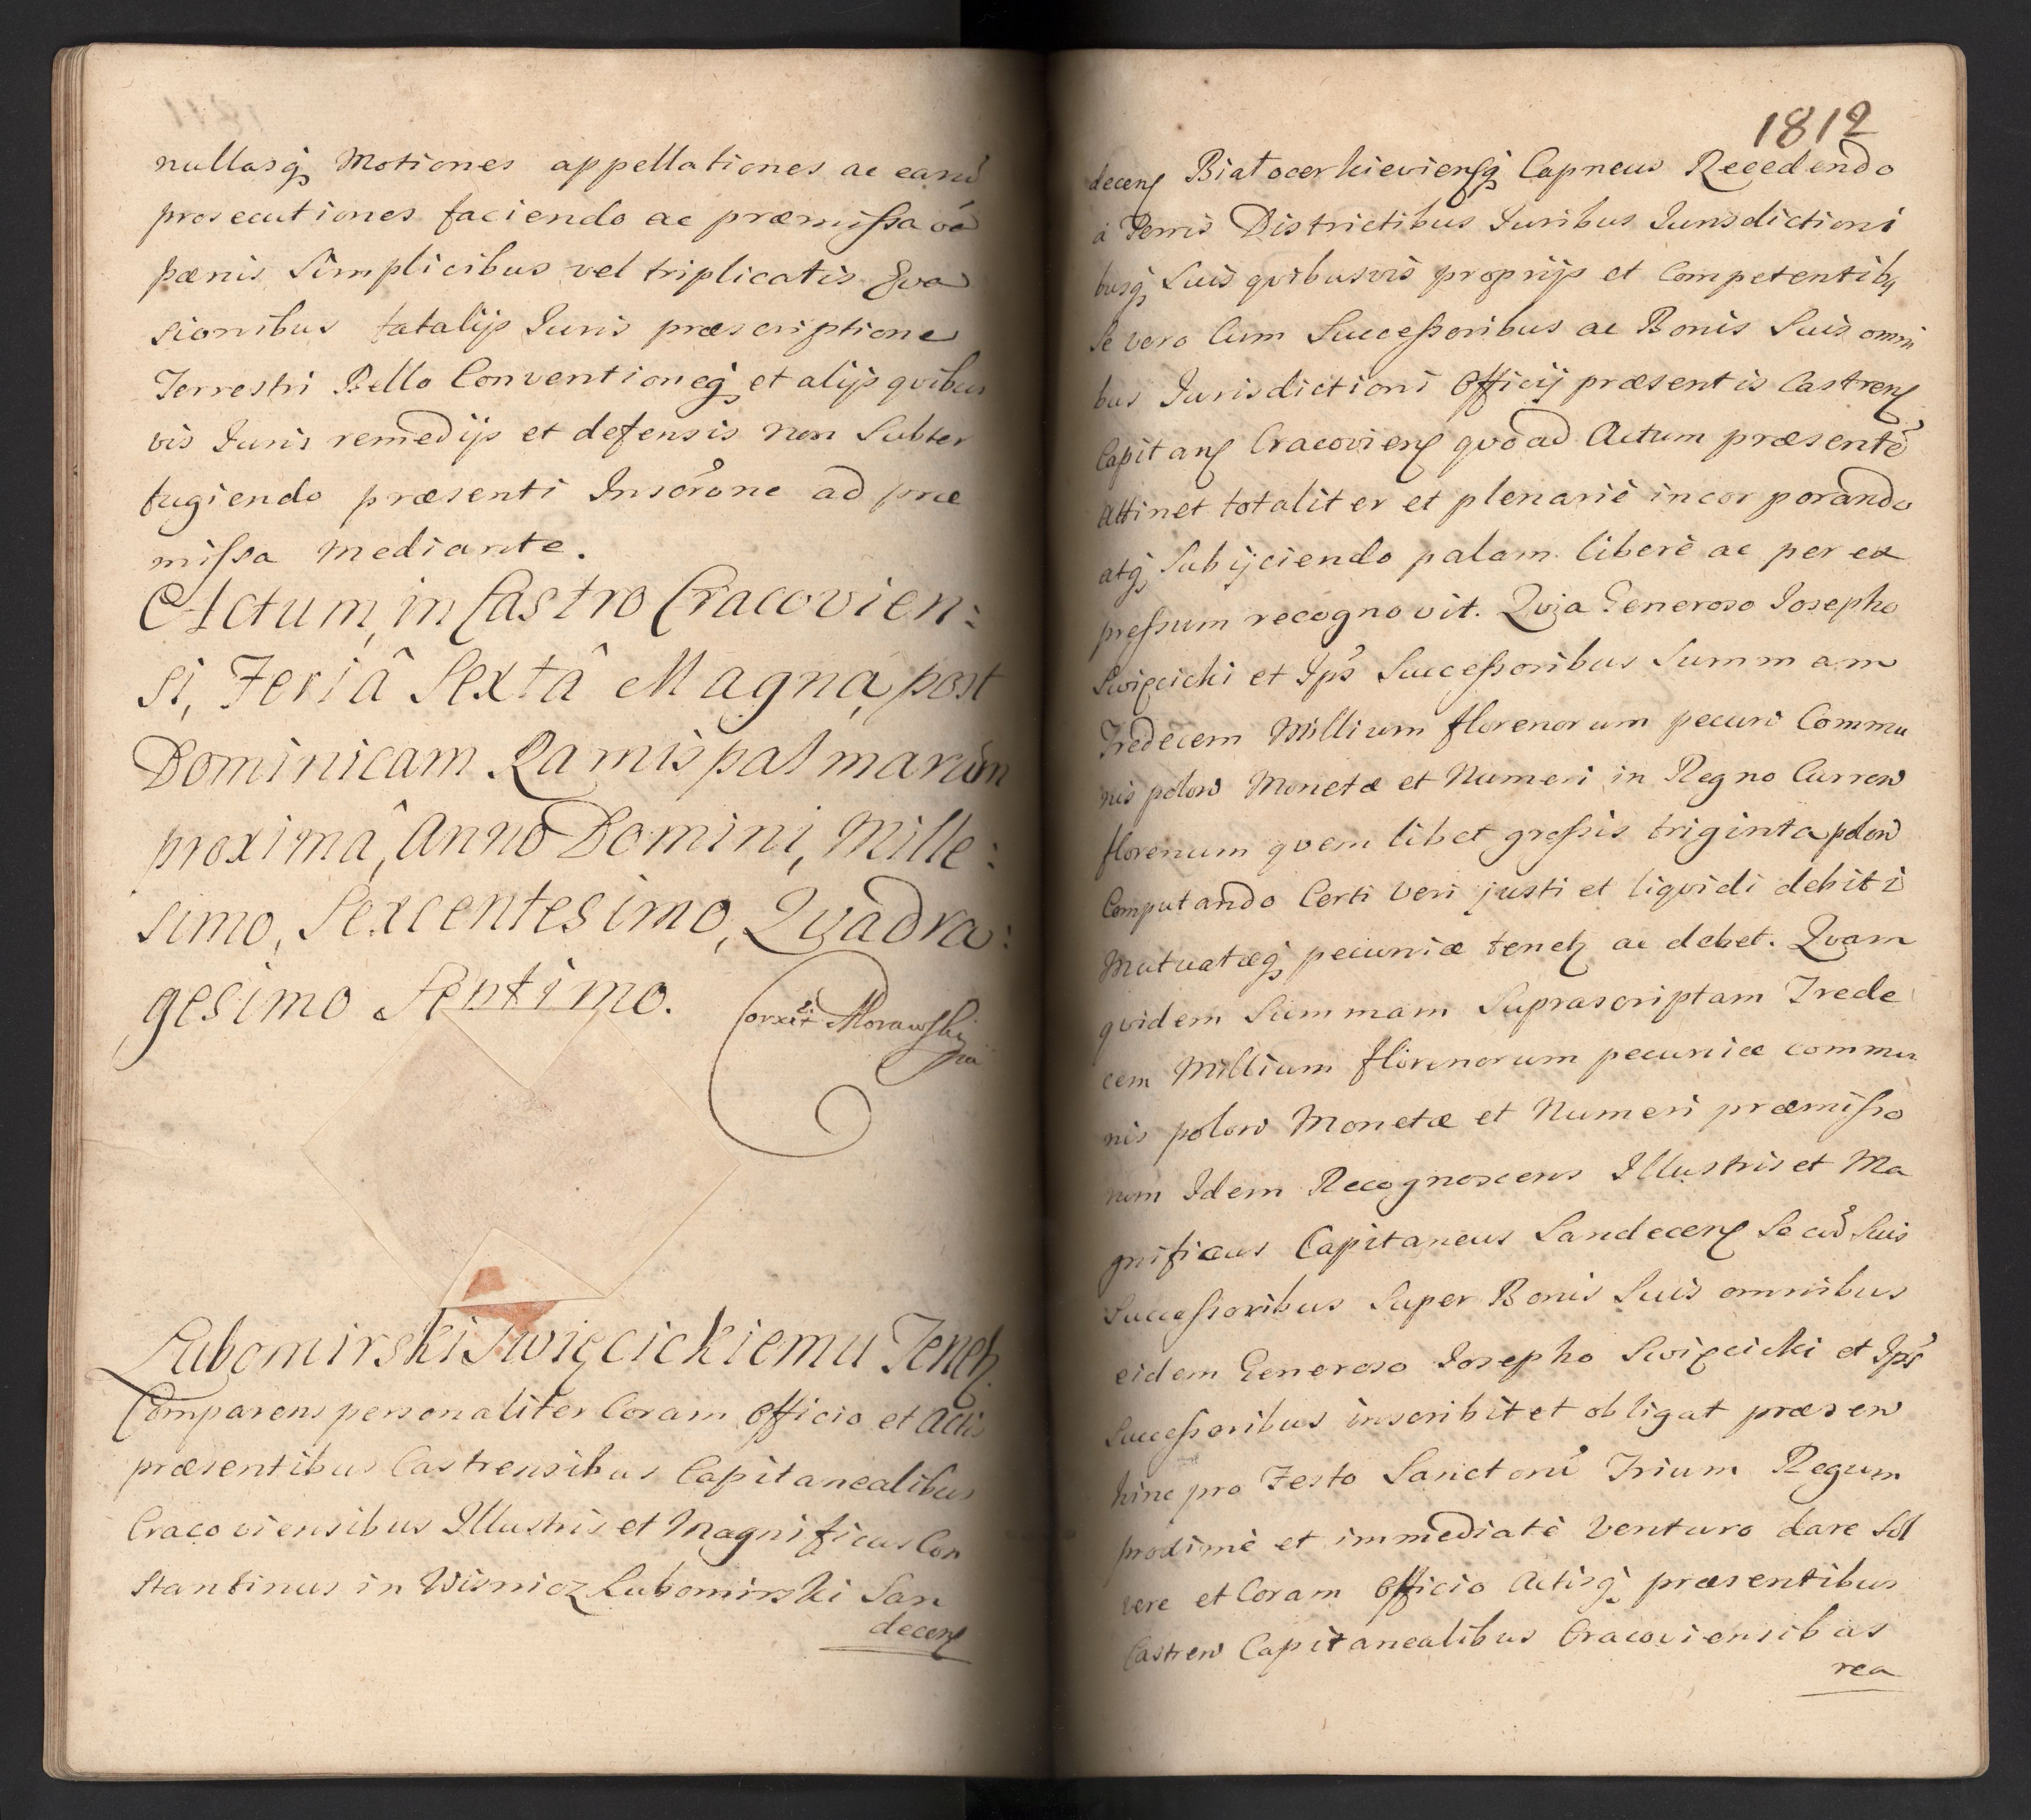 nullasq, Motiones appellationes ac earū
prosecutiones faciendo ac præmissa oā
pænis Simplicibus vel triplicatis Eva
sionibus fatalijs Juris præscriptione
Terrestri Bello Conventioneq, et alijs qvibus
vis Juris remedijs et defensis non Subter
fugiendo præsenti Inscrōne ad præ
missa mediante.
Actum, in Castro Cracovien:
si, Feriâ Sextâ Magna, post
Dominicam Ramispalmarum
proximâ, Anno Domini, Mille:
simo, Sexcentesimo, Qvadra:
gesimo Septimo.
Corxit Morawski
Lubomirski Swięcickiemu Tenetz
Comparens personaliter Coram Officio et Actis
præsentibus Castrensibus Capitanealibus
Cracoviensibus Illustris et Magnificus Con
stantinus in Wisnicz Lubomirski San
decen̄
1812
decen̄ Białocerkieviensq, Capneus Recedendo
á Terris Districtibus Juribus Jurisdictioni
busq, Suis qvibusvis proprijs et Competentibq
Se vero Cum Successoribus ac Bonis Suis omni
bus Jurisdictioni Officij præsentis Castren̄
Capitan̄ Cracovien̄ qvo ad Actum præsentē
Attinet totaliter et plenariè incorporando
atq, Subijciendo palam liberè ac per ex
pressum recognovit. Qvia Generoso Josepho
Swięcicki et Ips Successoribus Summam
Tredecem Millium florenorum pecun̄ Commu
nis polon̄ Monetæ et Numeri in Regno Curren̄
florenum qvemlibet grossis triginta polon̄
Computando Certi veri justi et liqvidi debiti
Mutuatæq, pecuniæ tenetz ac debet. Qvam
qvidem Summam Suprascriptam Trede
cem Millium florenorum pecuniæ commu
nis polon̄ Monetæ et Numeri præmisso
rum Idem Recognoscens Illustris et Ma
gnificus Capitaneus Sandecen̄ Se cū Suis
Successoribus Super Bonis Suis omnibus
eidem Generoso Josepho Swięcicki et Ips
Successoribus inscribit et obligat præsen̄
hinc pro Festo Sanctorū Trium Regum
prodimè et immediatè Venturo dare Sol
vere et Coram Officio Actisq, præsentibus
Castren̄ Capitanealibus Cracoviensibus
rea